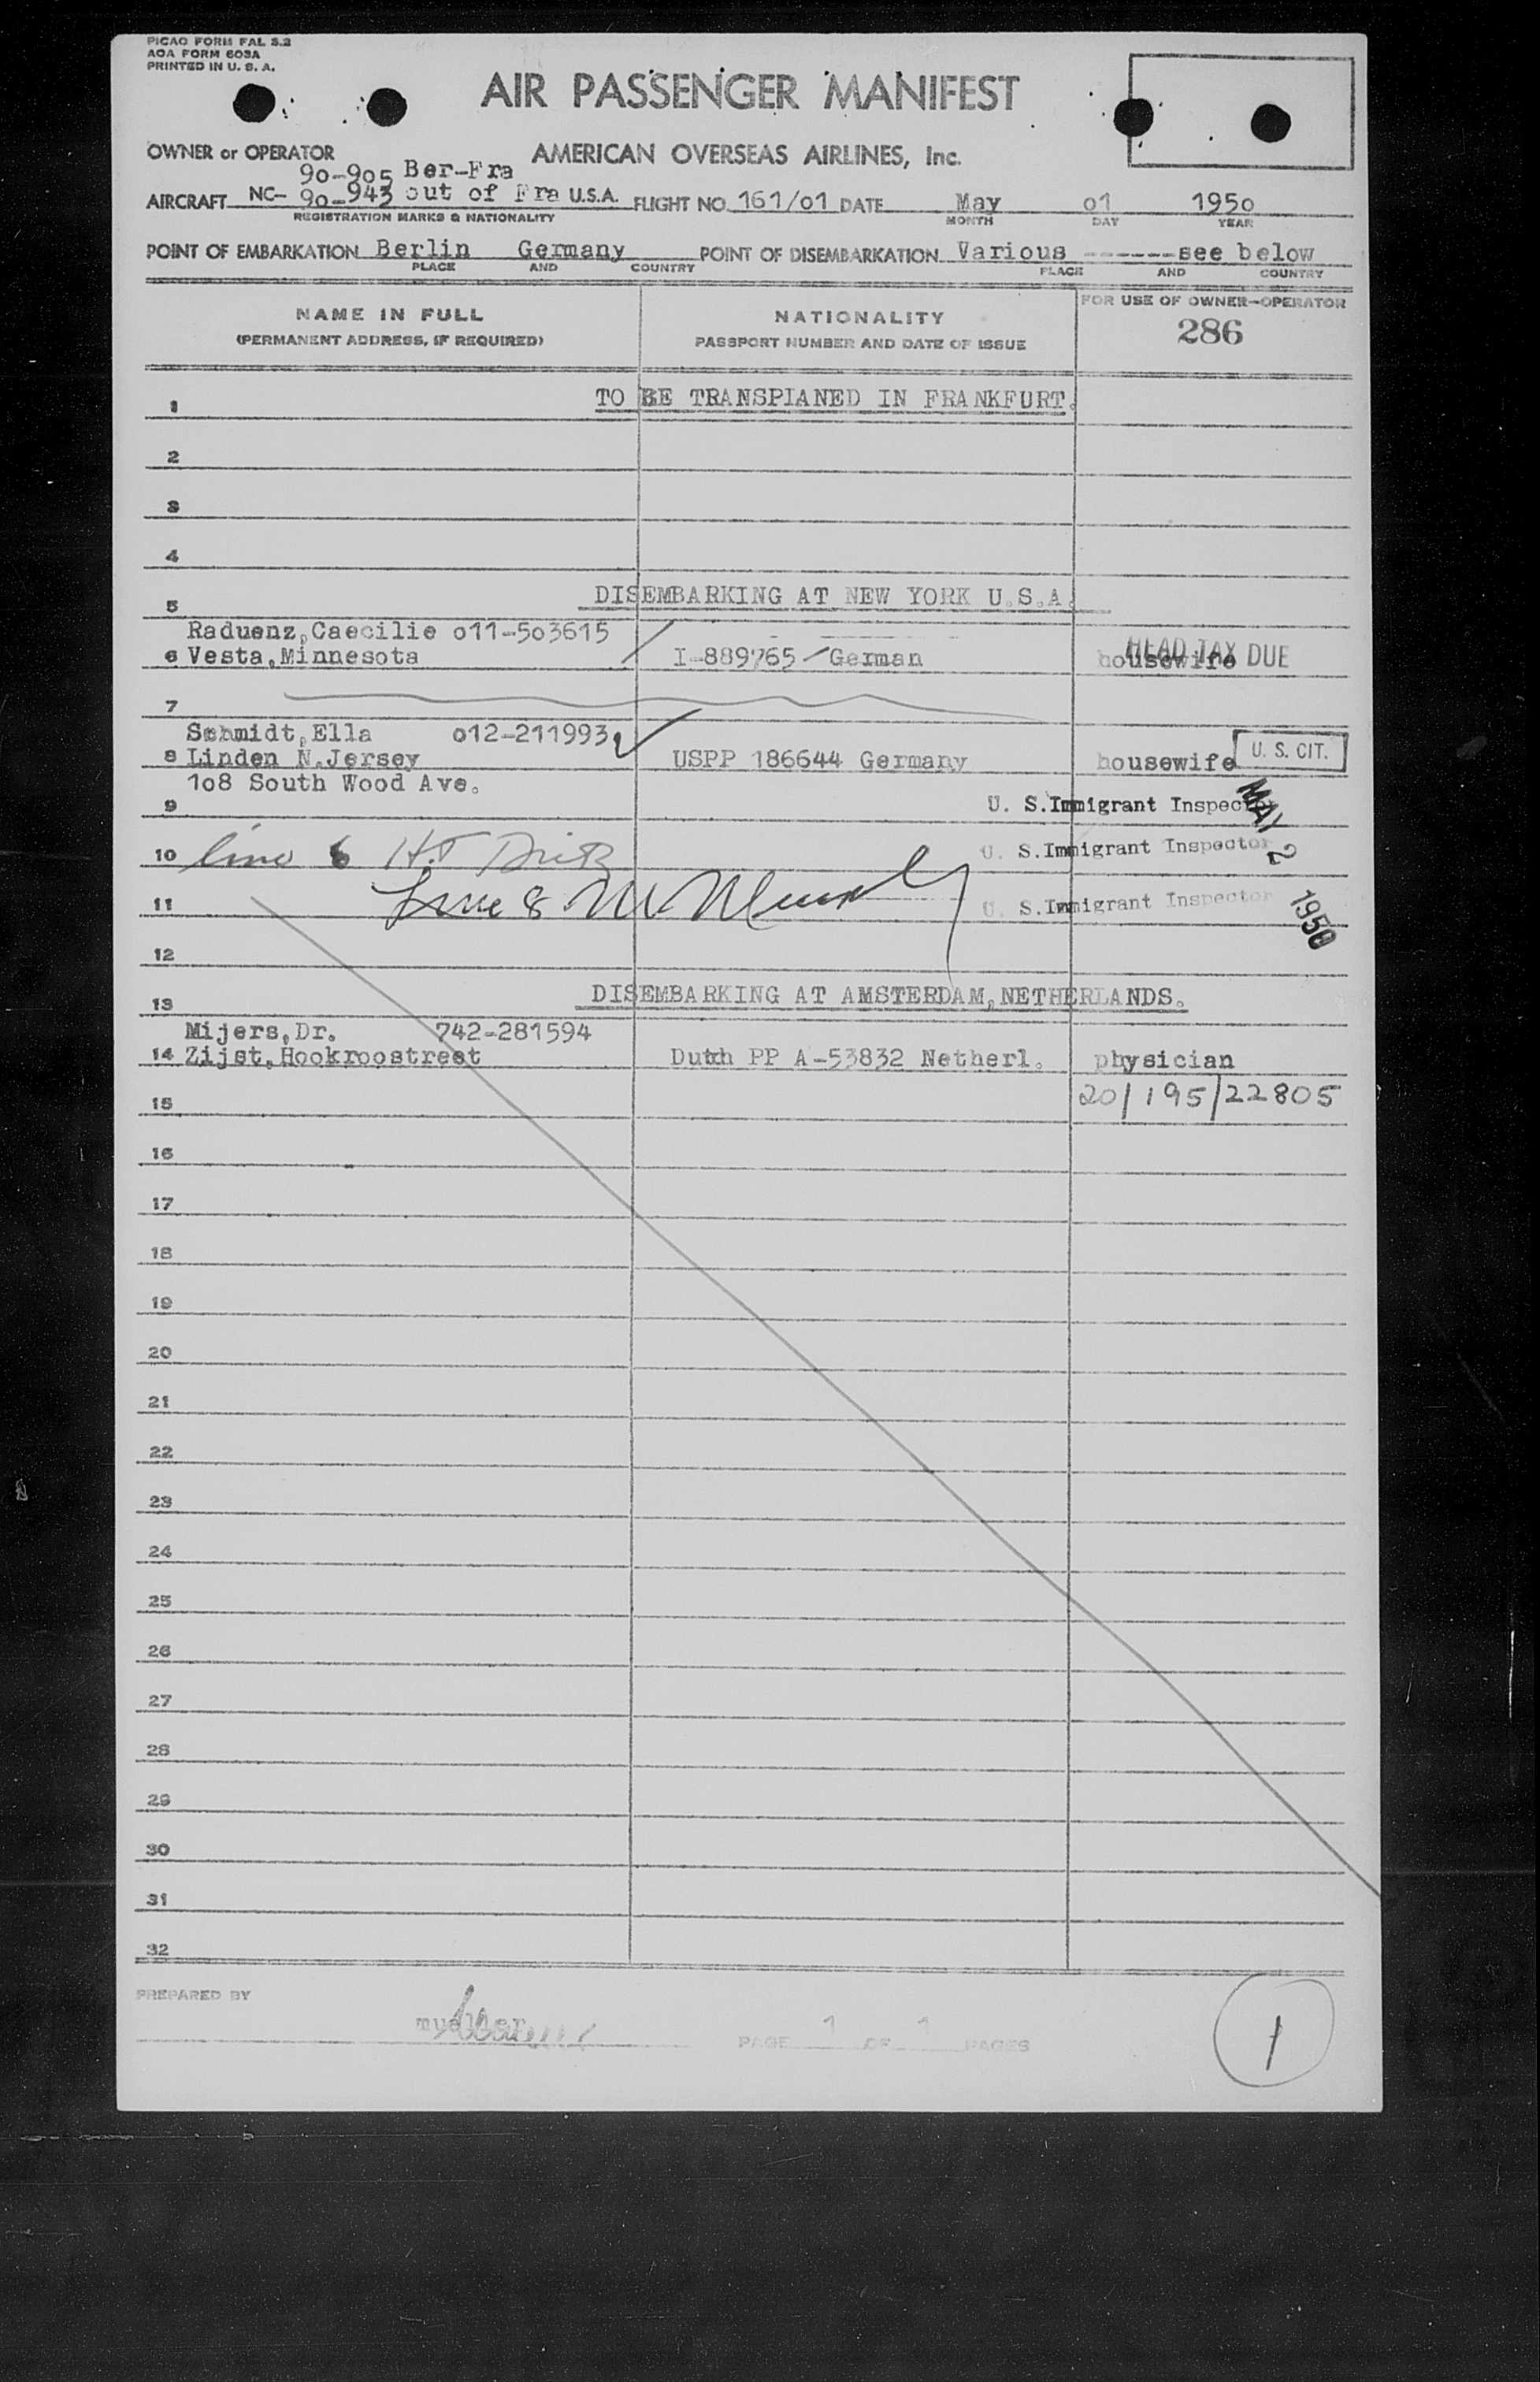 PICAO FORM FAL S.2
AOA FORM 603A
PRINTED IN U. S. A.
AIR PASSENGER MANIFEST
OWNER or OPERATOR AMERICAN OVERSEAS AIRLINES, Inc.
90-905 Ber-Fra
AIRCRAFT NC- 90-943 out of Fra U.S.A. FLIGHT NO. 161/01 DATE May 01 1950
REGISTRATION MARKS & NATIONALITY MONTH DAY YEAR
POINT OF EMBARKATION Berlin Germany POINT OF DISEMBARKATION Various ------see below
PLACE AND COUNTRY PLACE AND COUNTRY
NAME IN FULL
(PERMANENT ADDRESS, IF REQUIRED)
NATIONALITY
PASSPORT NUMBER AND DATE OF ISSUE
FOR USE OF OWNER-OPERATOR
286
1 TO BE TRANSPLANED IN FRANKFURT.
2
3
4
5 DISEMBARKING AT NEW YORK U.S.A.
Raduenz,Caecilie 011-503615
6 Vesta,Minnesota I-889765 German housewife HEAD TAX DUE
7
Schmidt,Ella 012-211993
8 Linden N.Jersey USPP 186644 Germany housewife U. S. CIT.
108 South Wood Ave.
9 U. S.Immigrant Inspector
MAY 2 1950
10 line 6 H.T U. S.Immigrant Inspector
11 Line 8 U. S.Immigrant Inspector
12
13 DISEMBARKING AT AMSTERDAM,NETHERLANDS.
Mijers,Dr. 742-281594
14 Zijst,Hookroostreet Dutch PP A-53832 Netherl. physician
15 20/195/22805
16
17
18
19
20
21
22
23
24
25
26
27
28
29
30
31
32
PREPARED BY
PAGE 1 OF 1 PAGES
1